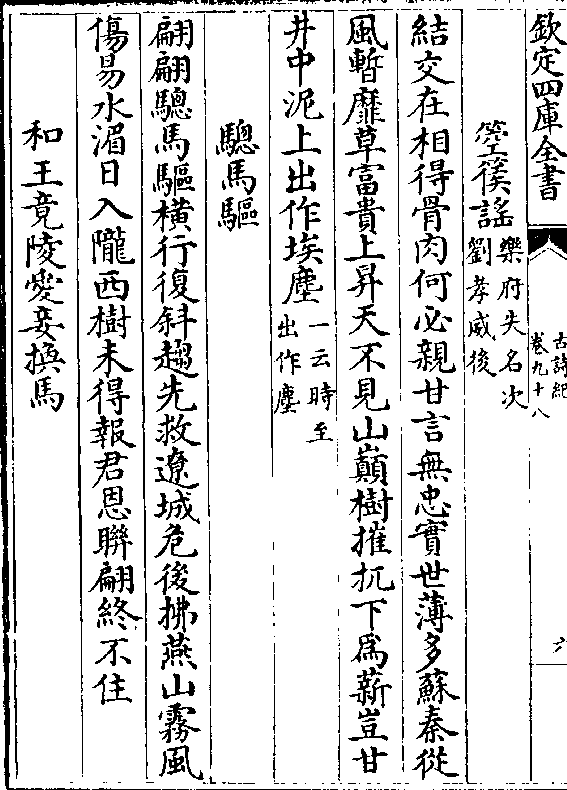 欽定四庫全書
古詩紀
卷九十八
六
箜篌謡
樂府失名次
劉孝威後
結交在相得骨肉何必親甘言無忠實世薄多蘇秦從
風暫靡草富貴上昇天不見山巔樹摧扤下為薪豈甘
井中泥上出作埃塵
一云時至
出作塵
驄馬驅
翩翩驄馬驅橫行復斜趨先救遼城危後拂燕山霧風
傷易水湄日入隴西樹未得報君恩聯翩終不住
和王竟陵愛妾換馬